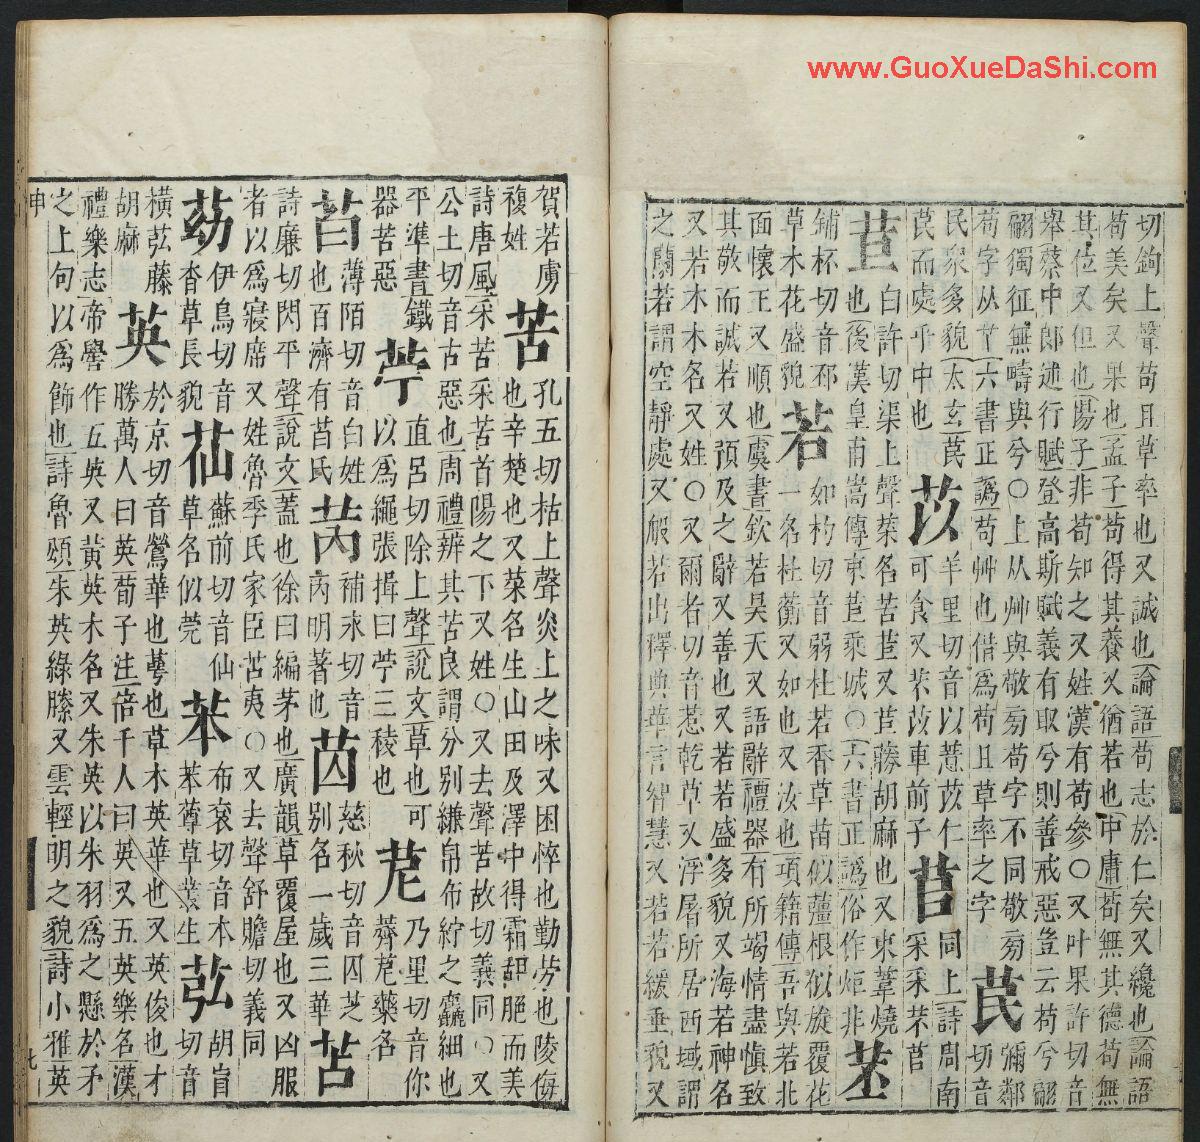 www.GuoXueDaShi.com
切鉤上聲苟且草率也又誠也論語苟志於仁矣又纔也論語
苟美矣又果也孟子苟得其養又猶若也中庸苟無其德苟無
其位又但也揚子非苟知之又姓漢有苟參〇又叶果許切音
舉蔡中郎述行賦登高斯賦義有取兮則善戒惡豈云苟兮翩
翩獨征無疇與兮〇上从艸與敬旁苟字不同敬旁
苟字从𦫳六書正譌苟艸也借爲苟且草率之字 苠 彌鄰切音
民衆多貌太玄苠
苠而處乎中也 苡 羊里切音以薏苡仁可食又芣苡車前子 苢 同上詩周南采采芣苢
苣 臼許切渠上聲菜名苦苣又苣藤胡麻也又束葦燒也後漢皇甫嵩傳束苣乘城〇六書正譌俗作炬非 苤
鋪杯切音邳
草木花盛貌 若 如杓切音弱杜若香草苗似薑根似旋覆花一名杜蘅又如也又汝也項籍傳吾與若北
面懷王又順也虞書欽若昊天又語辭禮器有所竭情盡愼致
其敬而誠若又預及之辭又善也又若若盛多貌又海若神名
又若木木名又姓〇又爾者切音惹乾草又浮屠所居西域謂
之蘭若謂空靜處又般若出釋典華言智慧又若若緩垂貌又
賀若虜
複姓 苦 孔五切枯上聲炎上之味又困悴也勤勞也陵侮也辛楚也又菜名生山田及澤中得霜甜脆而美
詩唐風采苦采苦首陽之下又姓〇又去聲苦故切義同〇又
公土切音古惡也周禮辨其苦良謂分別縑帛布紵之麤細也
平準書鐵
器苦惡 苧 直呂切除上聲說文草也可以爲繩張揖曰苧三稜也 苨 乃里切音你薺苨藥名
苩 薄陌切音白姓也百濟有苩氏 苪 補永切音丙明著也 苬 慈秋切音囚芝別名一歲三華 苫
詩廉切閃平聲說文蓋也徐曰編茅也廣韻草覆屋也又凶服
者以爲寢席又姓魯季氏家臣苫夷〇又去聲舒贍切義同
苭 伊鳥切音杳草長貌 苮 蘇前切音仙草名似莞 苯 布袞切音本苯䔿草叢生 苰 胡肓切音
橫苰藤
胡麻 英 於京切音鶯華也蕚也草木英華也又英俊也才勝萬人曰英荀子注倍千人曰英又五英樂名漢
禮樂志帝嚳作五英又黃英木名又朱英以朱羽爲之懸於矛
之上句以爲飾也詩魯頌朱英綠縢又雲輕明之貌詩小雅英
申